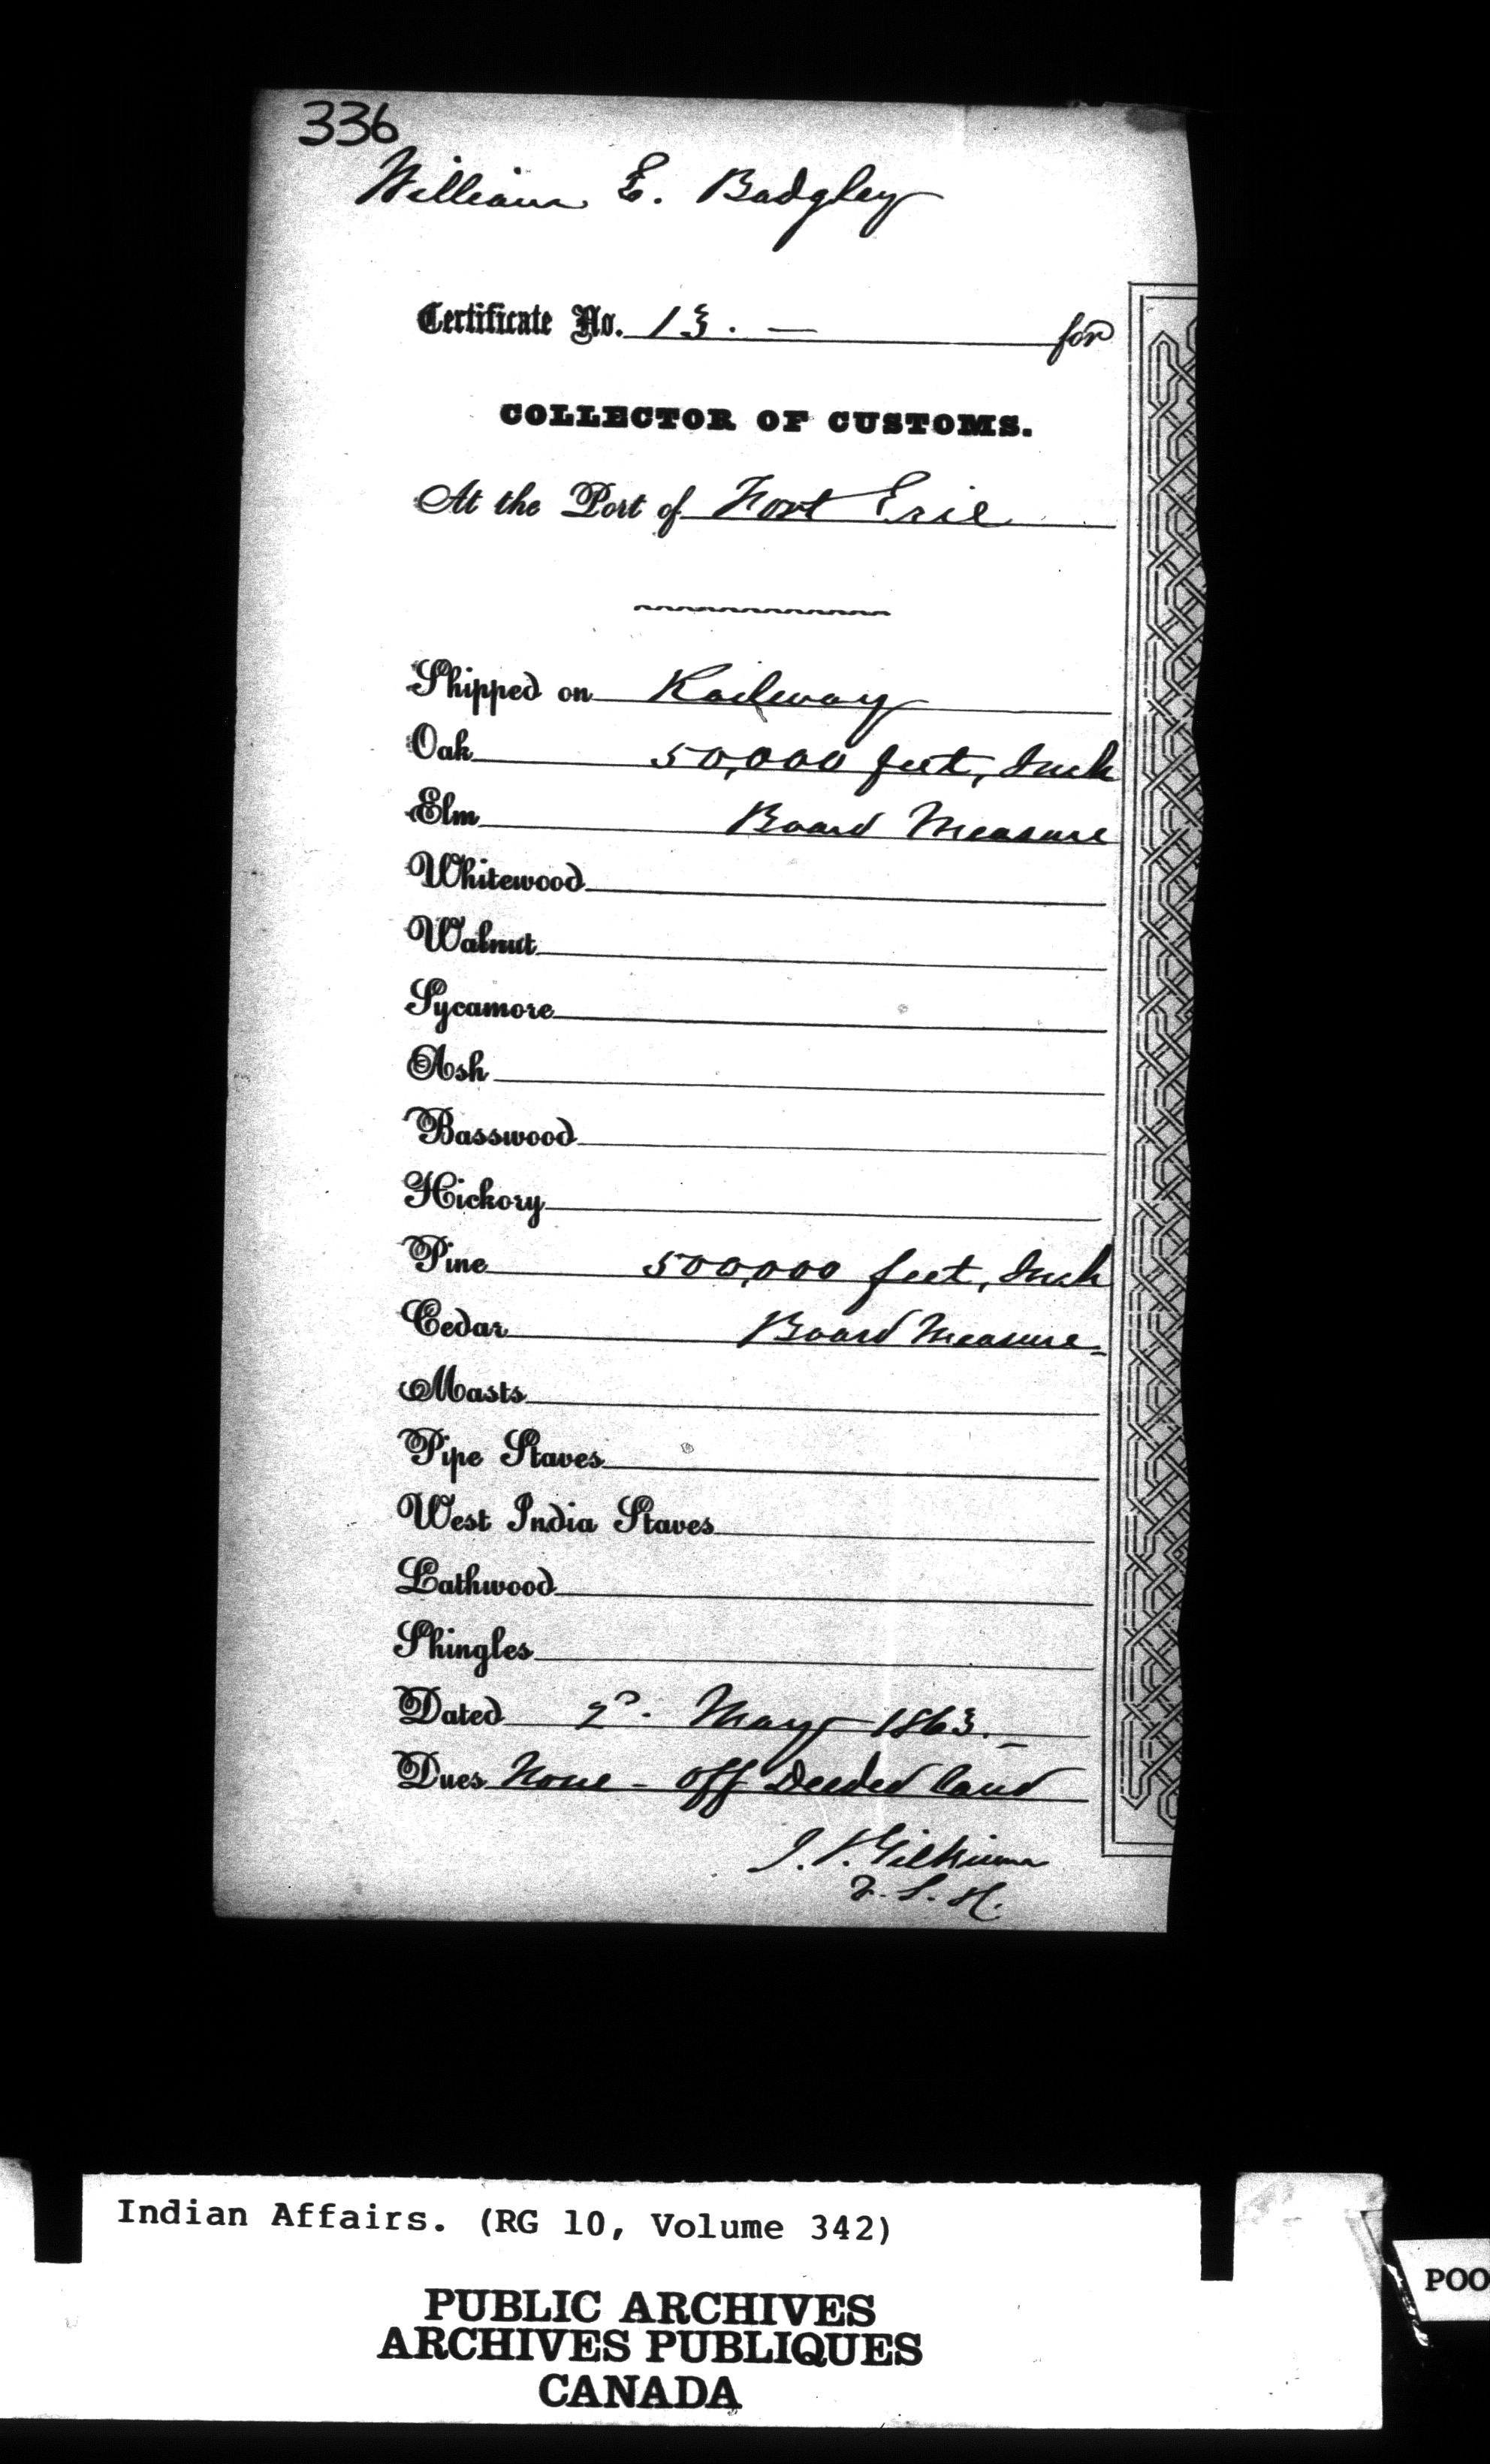 336
William E. Badgley
Certificate No. 13. — for
COLLECTOR OF CUSTOMS.
At the Port of Fort Erie
Shipped on Railway
Oak 50,000 feet, Inch
Elm Board Measure
Whitewood
Walnut
Sycamore
Ash
Basswood
Hickory
Pine 500,000 feet, Inch
Cedar Board Measure
Masts
Pipe Staves
West India Staves
Lathwood
Shingles
Dated 2d. May 1863. –
Dues None - off Deeded land
J. T. Gilkison
Indian Affairs. (RG 10, Volume 342)
POO
PUBLIC ARCHIVES
ARCHIVES PUBLIQUES
CANADA